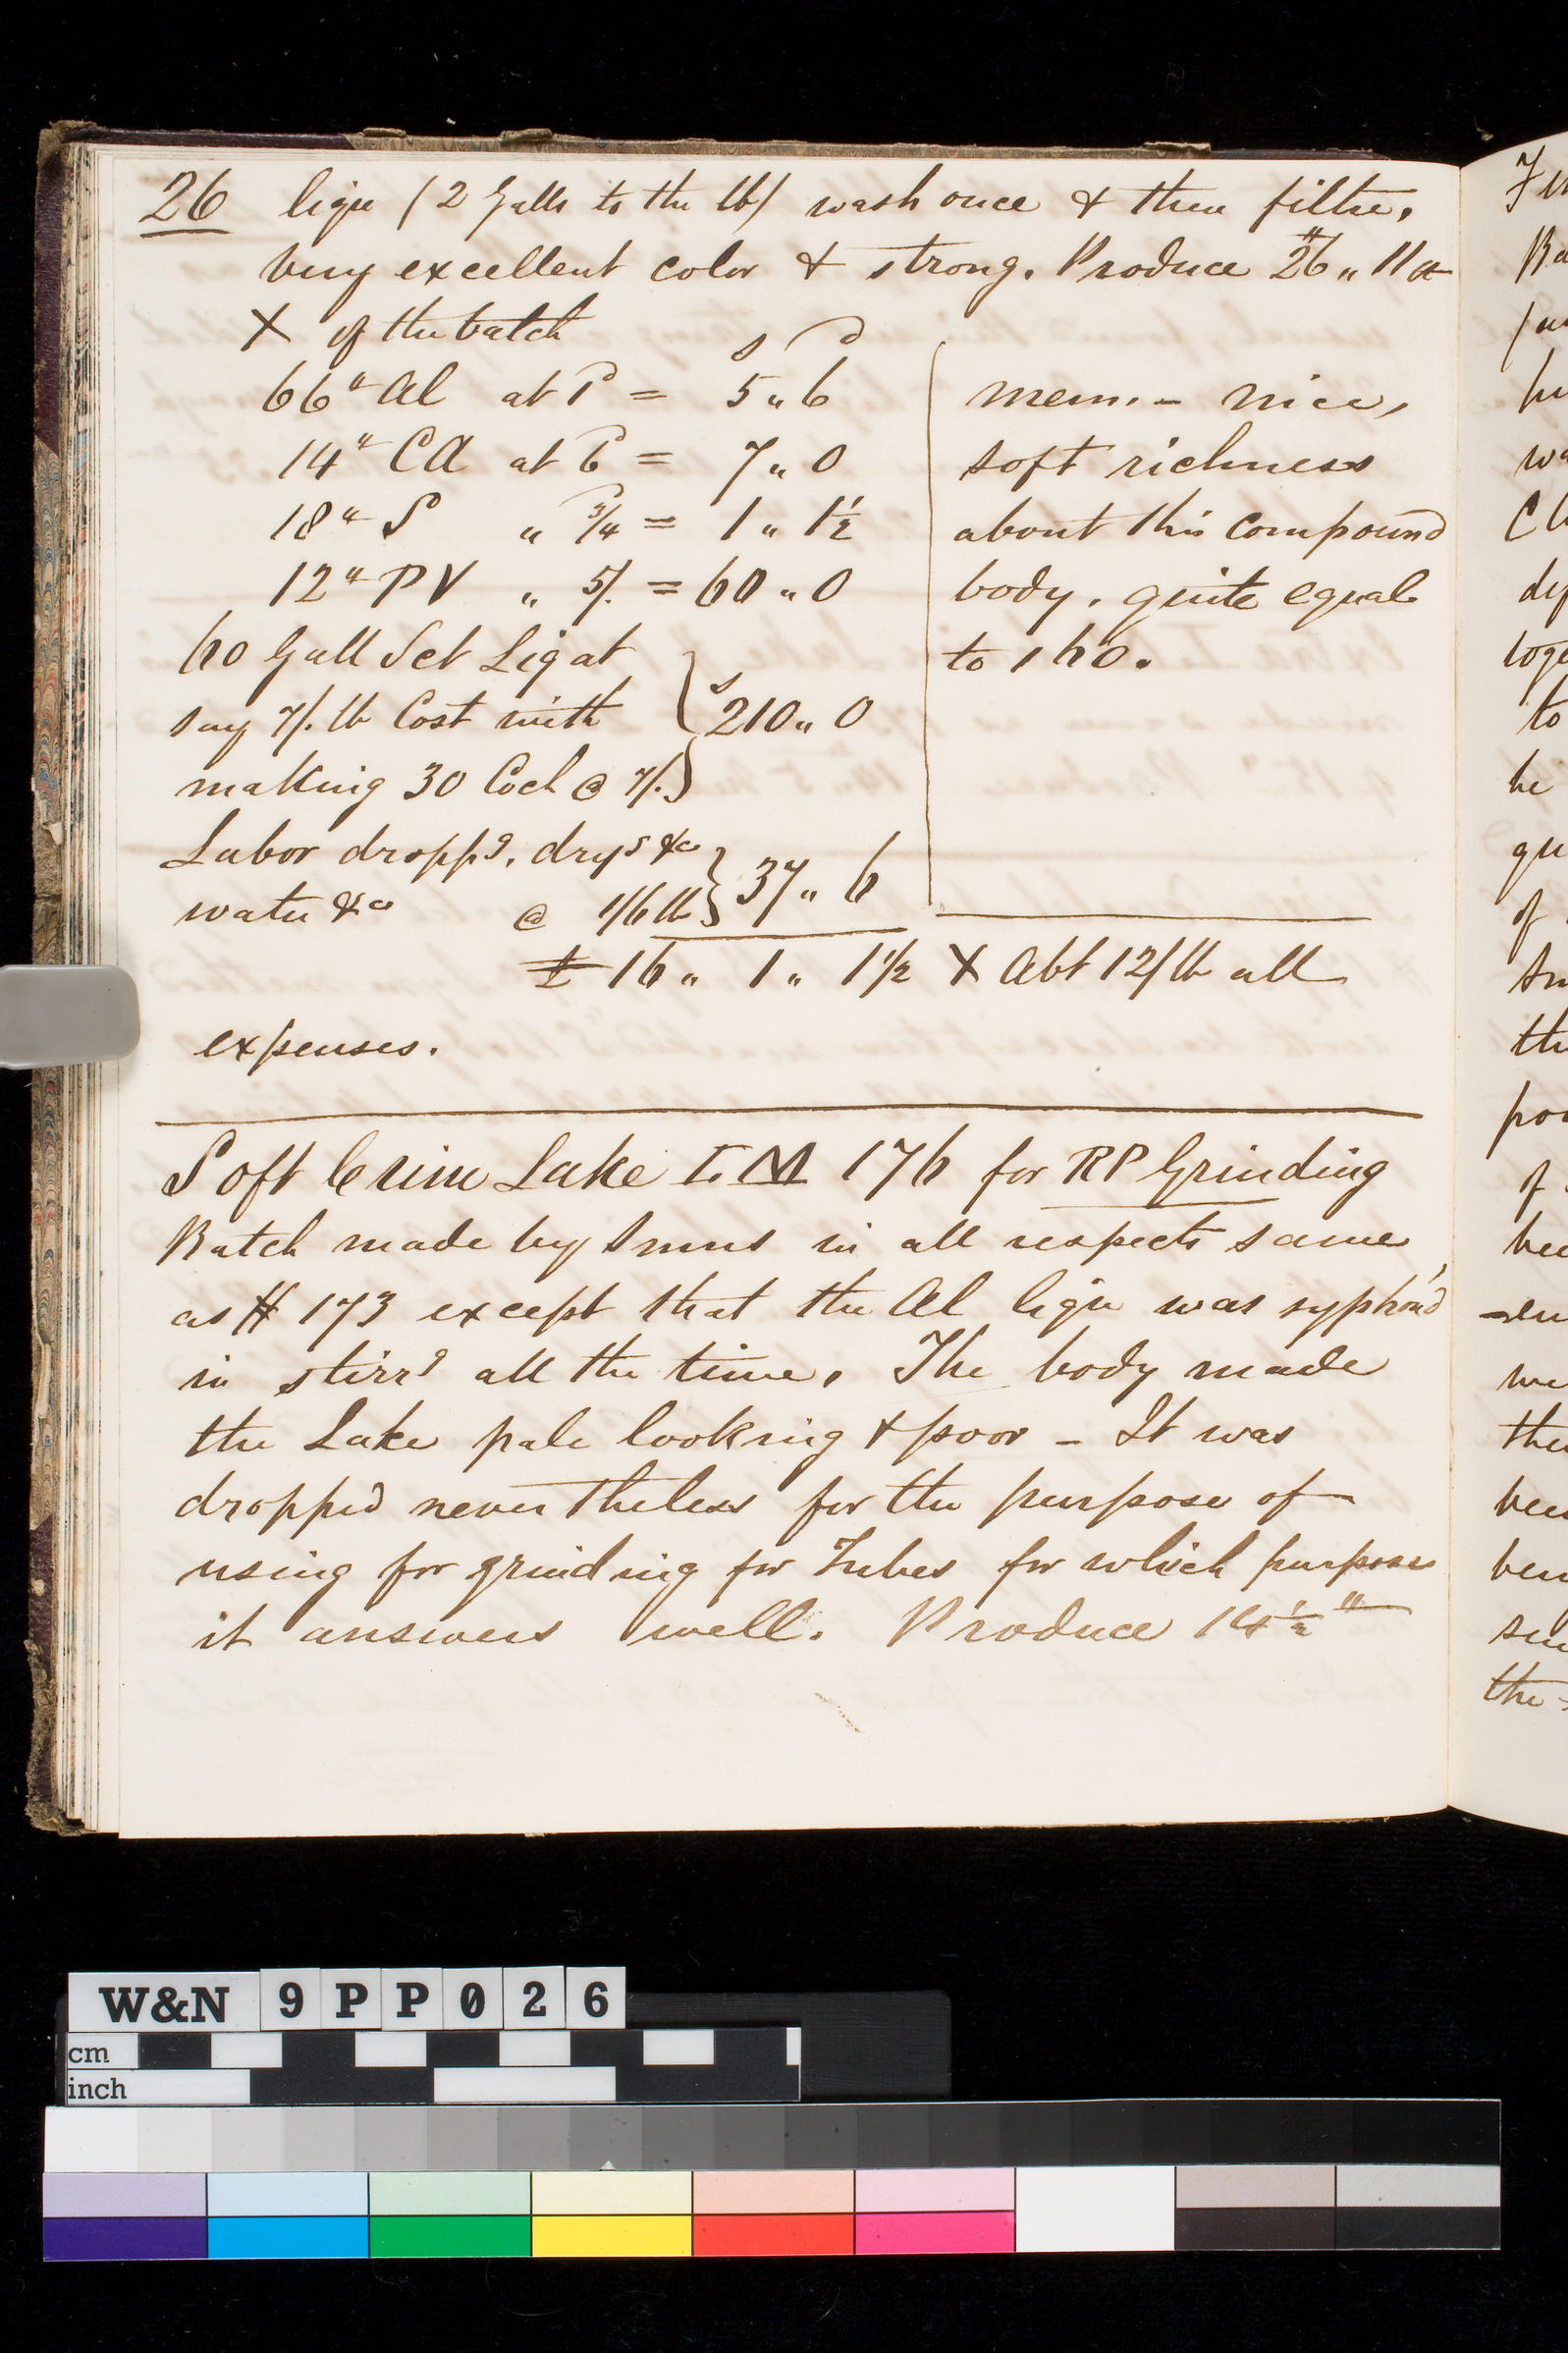 26 liqu (2 Galls to the lb) wash once & then filtre.
very excellent color & strong. Produce 26 " 11 oz
X of the batch
s d
66 " Al at 1d = 5 " 6
14 " CA at 6d = 7 " 0
18 " S " 3/4d = 1 " 1½
12 " PV " 5/. = 60 " 0
60 Gall Sct Liq at
say 7/. lb Cost with
making 30 Coch @ 7/. } 210 " 0
Labor droppg, dryg &c
water &c @ 1/6 lb } 37 " 6
£ 16 " 1 " 1½ X Abt 12/ lb all
expenses.
mem. - nice,
soft richness
about this compound
body. quite equal
to 160.
Soft Crim Lake I. M 176 for RP Grinding
Batch made by Smns in all respects same
as # 173 except that the Al liqu was syphon'd
in stirrg all the time. The body made
the Lake pale looking & poor - It was
dropped never theless for the purpose of
using for grinding for Tubes for which purpose
it answers well. Produce 14½ "
W&N 9PP026
cm
inch